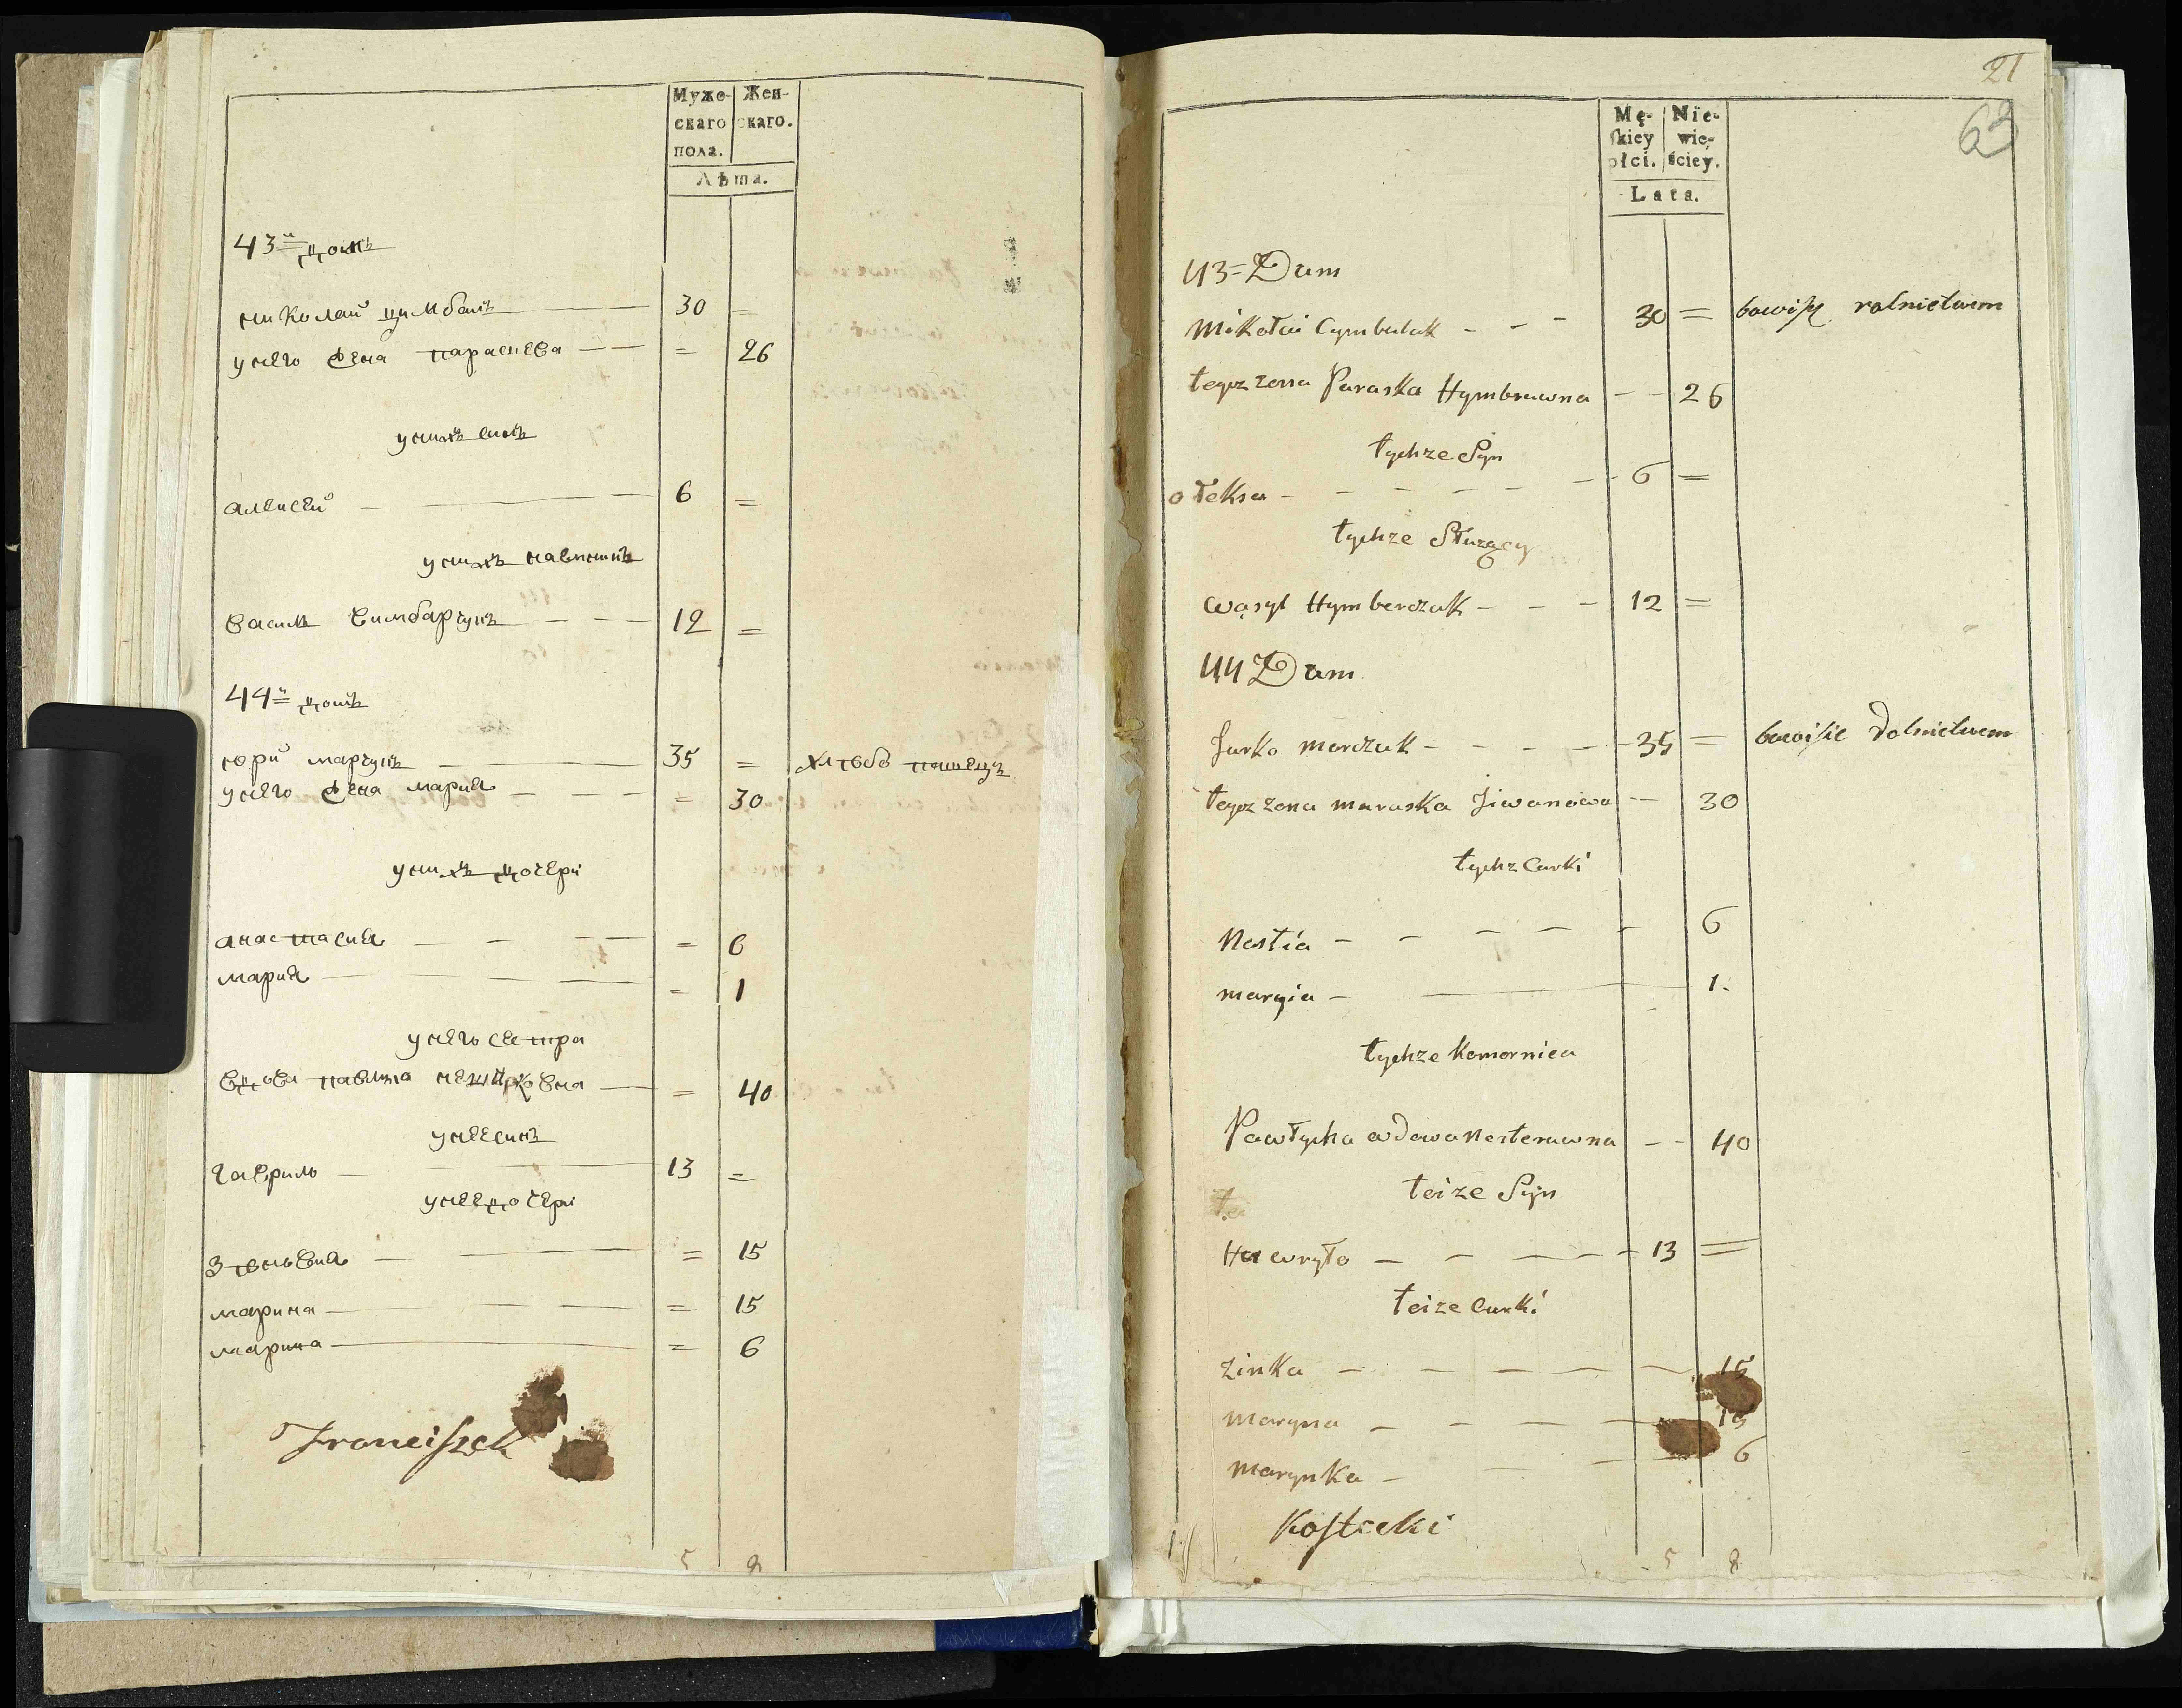 Муже-
скаго
пола.
Жен-
скаго.
Лѣта.
43й домъ
николай цимбалъ 30 =
унего жена параскева = 26
унихъ синъ
алексей 6 =
унихъ наемникъ
василь Гимбарчукъ 12 =
44й домъ
юрй марчукъ 35 = хлѣбо пашецъ
унего жена мария = 30
унихъ дочери
анастасия = 6
мария = 1
унего сестра
вдова = 40
унее синъ
гаврило 13 =
унее дочери
Зѣновия = 15
марина = 15
марина = 6
Franciszek
5 8
21
63
Mę-
skiey
płci.
Nie-
wie-
ściey.
Lata.
43 = Dum
Mikołai Cymbalak - - - 30 = bawi się rolnictwem
tegoz zona Paraska Hymbruwna - - 26
tychze Syn
ołeksa - - - - - - 6 =
tychze Służący
Wasyl Hymberczak - - - 12 =
44 Dum
Jurko marczuk - - - - - 35 = bawi sie Rolnictwem
tegoz zona maraska Jiwanowa - - 30
tychz Curki
Nastia - - - - - - 6
maryia - 1.
tychze Komornica
Pawłycha wdowa Nesteruwna - - 40
teize Syn
Hawryło - - - - - 13 =
teize Curki
Zinka - - - - - 15
Maryna - - - - 15
Marynka - - - 6
Kostecki
5 8